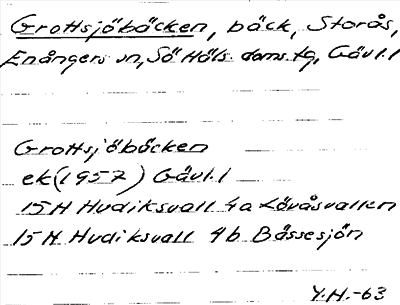 Grottsjöbäcken, bäck, Storås,
Enångers sn, Sö Häls. doms. tg, Gävl. l
Grottsjöbäcken
ek (1957) Gävl. l
15H Hudiksvall 4a Lövåsvallen
15H Hudiksvall 4b Båssesjön
Y.H.-63